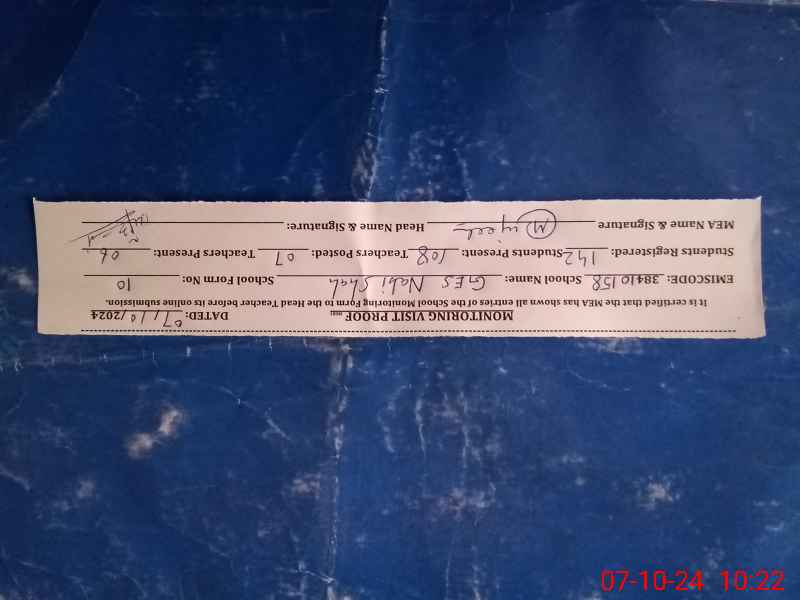 MONITORING VISIT PROOF DATED: 07/10/2024
It is certified that the MEA has shown all entries of the School Monitoring Form to the Head Teacher before its online submission.
EMISCODE: 38410158 School Name: GES Nabi Shah School Form No: 10
Students Registered: 142 Students Present: 108 Teachers Posted: 07 Teachers Present: 06
MEA Name & Signature Mujeeb Head Name & Signature:
07-10-24 10:22